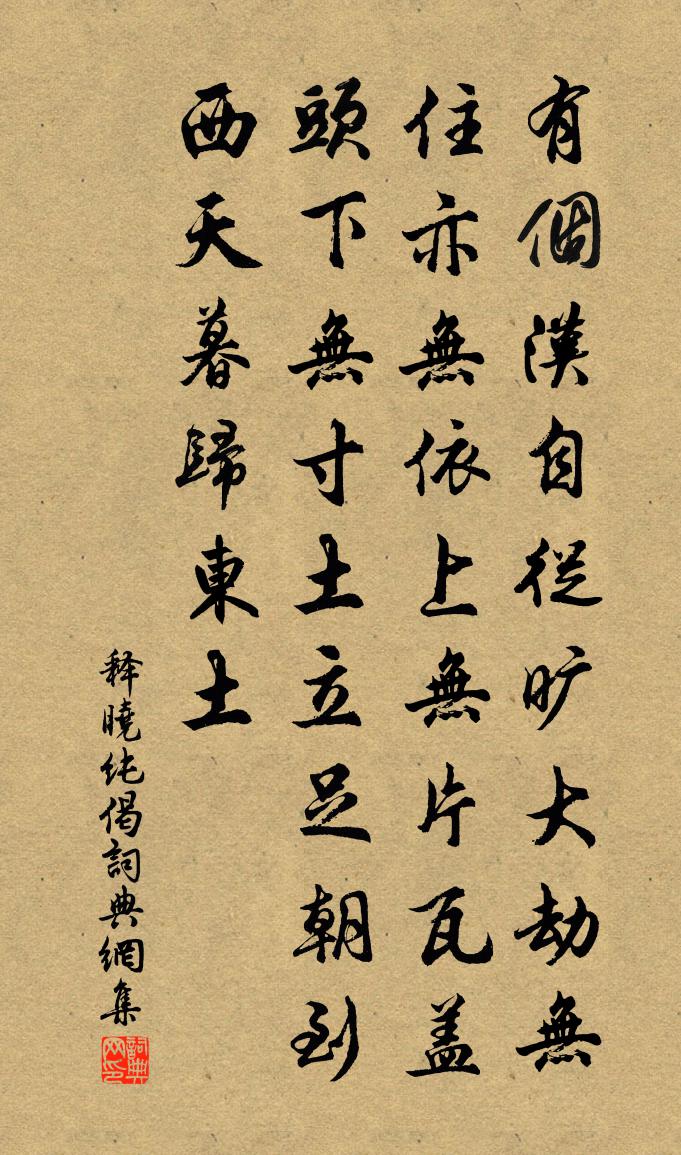 有個漢自從旷大劫無
住亦無依上無片瓦盖
頭下無寸土立足朝到
西天暮歸東土
释曉纯偈詞典網集
詞典网印